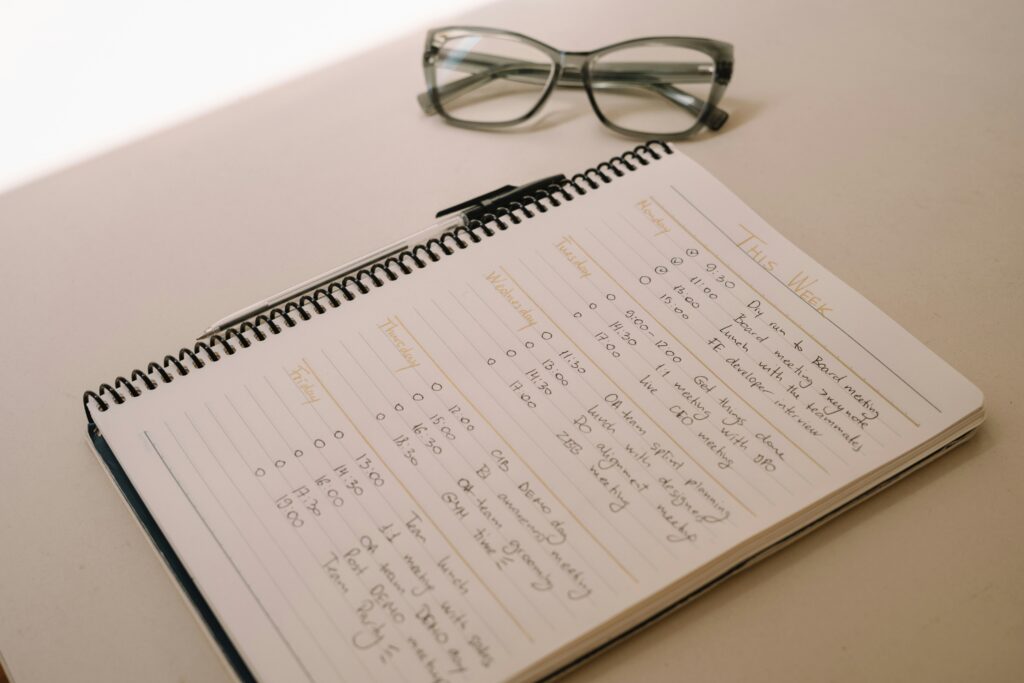 THIS WEEK
Monday
9:30 Dry run to Board meeting
11:00 Board meeting > keynote
13:00 Lunch with the teammates
15:00 FE developer interview
Tuesday
9:00-12:00 Get things done
14.30 1:1 meeting with
17.00 Live CEO meeting
Wednesday
11.30 OA team sprint planning
13.00 Lunch with designers
14.30 PO alignment meetup
17.00 meeting
Thursday
12.00 CIB DEMO day
15.00 BI awareness meeting
16.30 OA team grooming
18.30 GYM time
Friday
13.00 Team lunch
14.30 1:1 meeting with sales
16.00 OA team DEMO day
17.30 Post DEMO meeting
19.00 Team Party